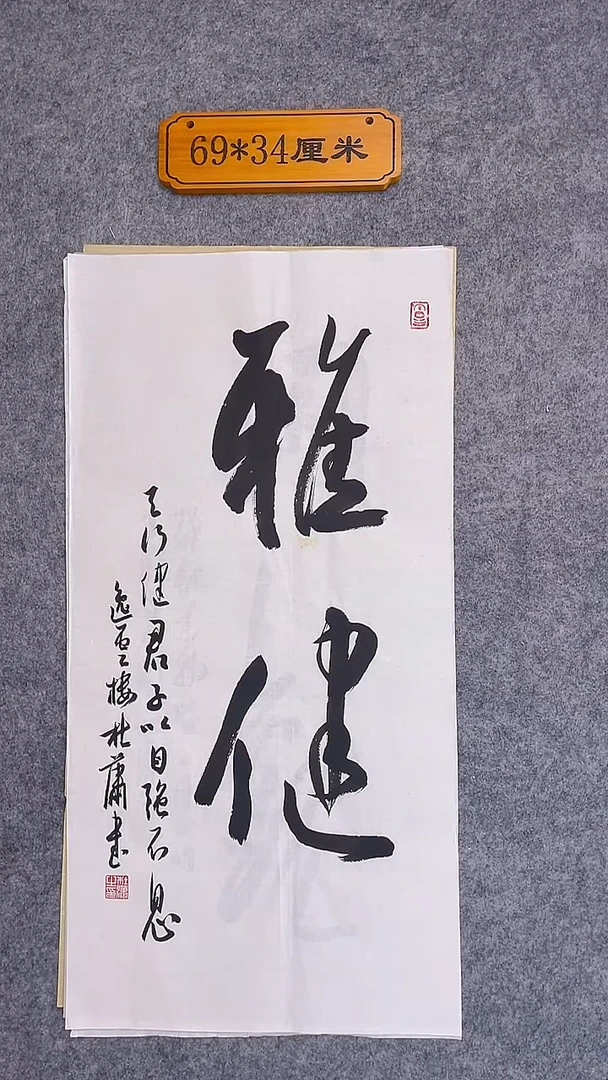 69*34厘米
雅健
天行健君子以自强不息
逸墨楼杜萧书